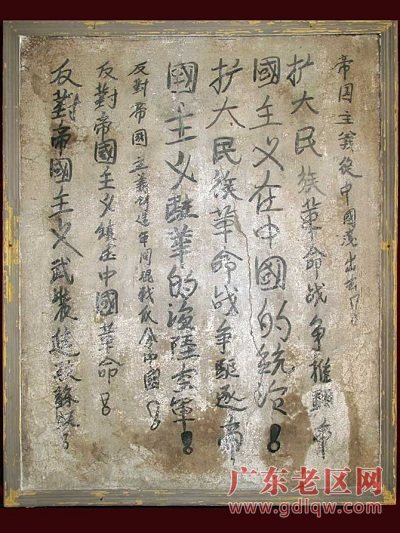 帝囯主義從中國滾出去!
扩大民族革命战争推翻帝
國主义在中國的統治!
扩大民族革命战争驅逐帝
國主义駐華的海陸空軍!
反對帝國主義制造軍閥混战瓜分中國!
反對帝國主义鎮压中國革命!
反對帝國主义武裝進攻蘇联!
广东老区网
www.gdlqw.com